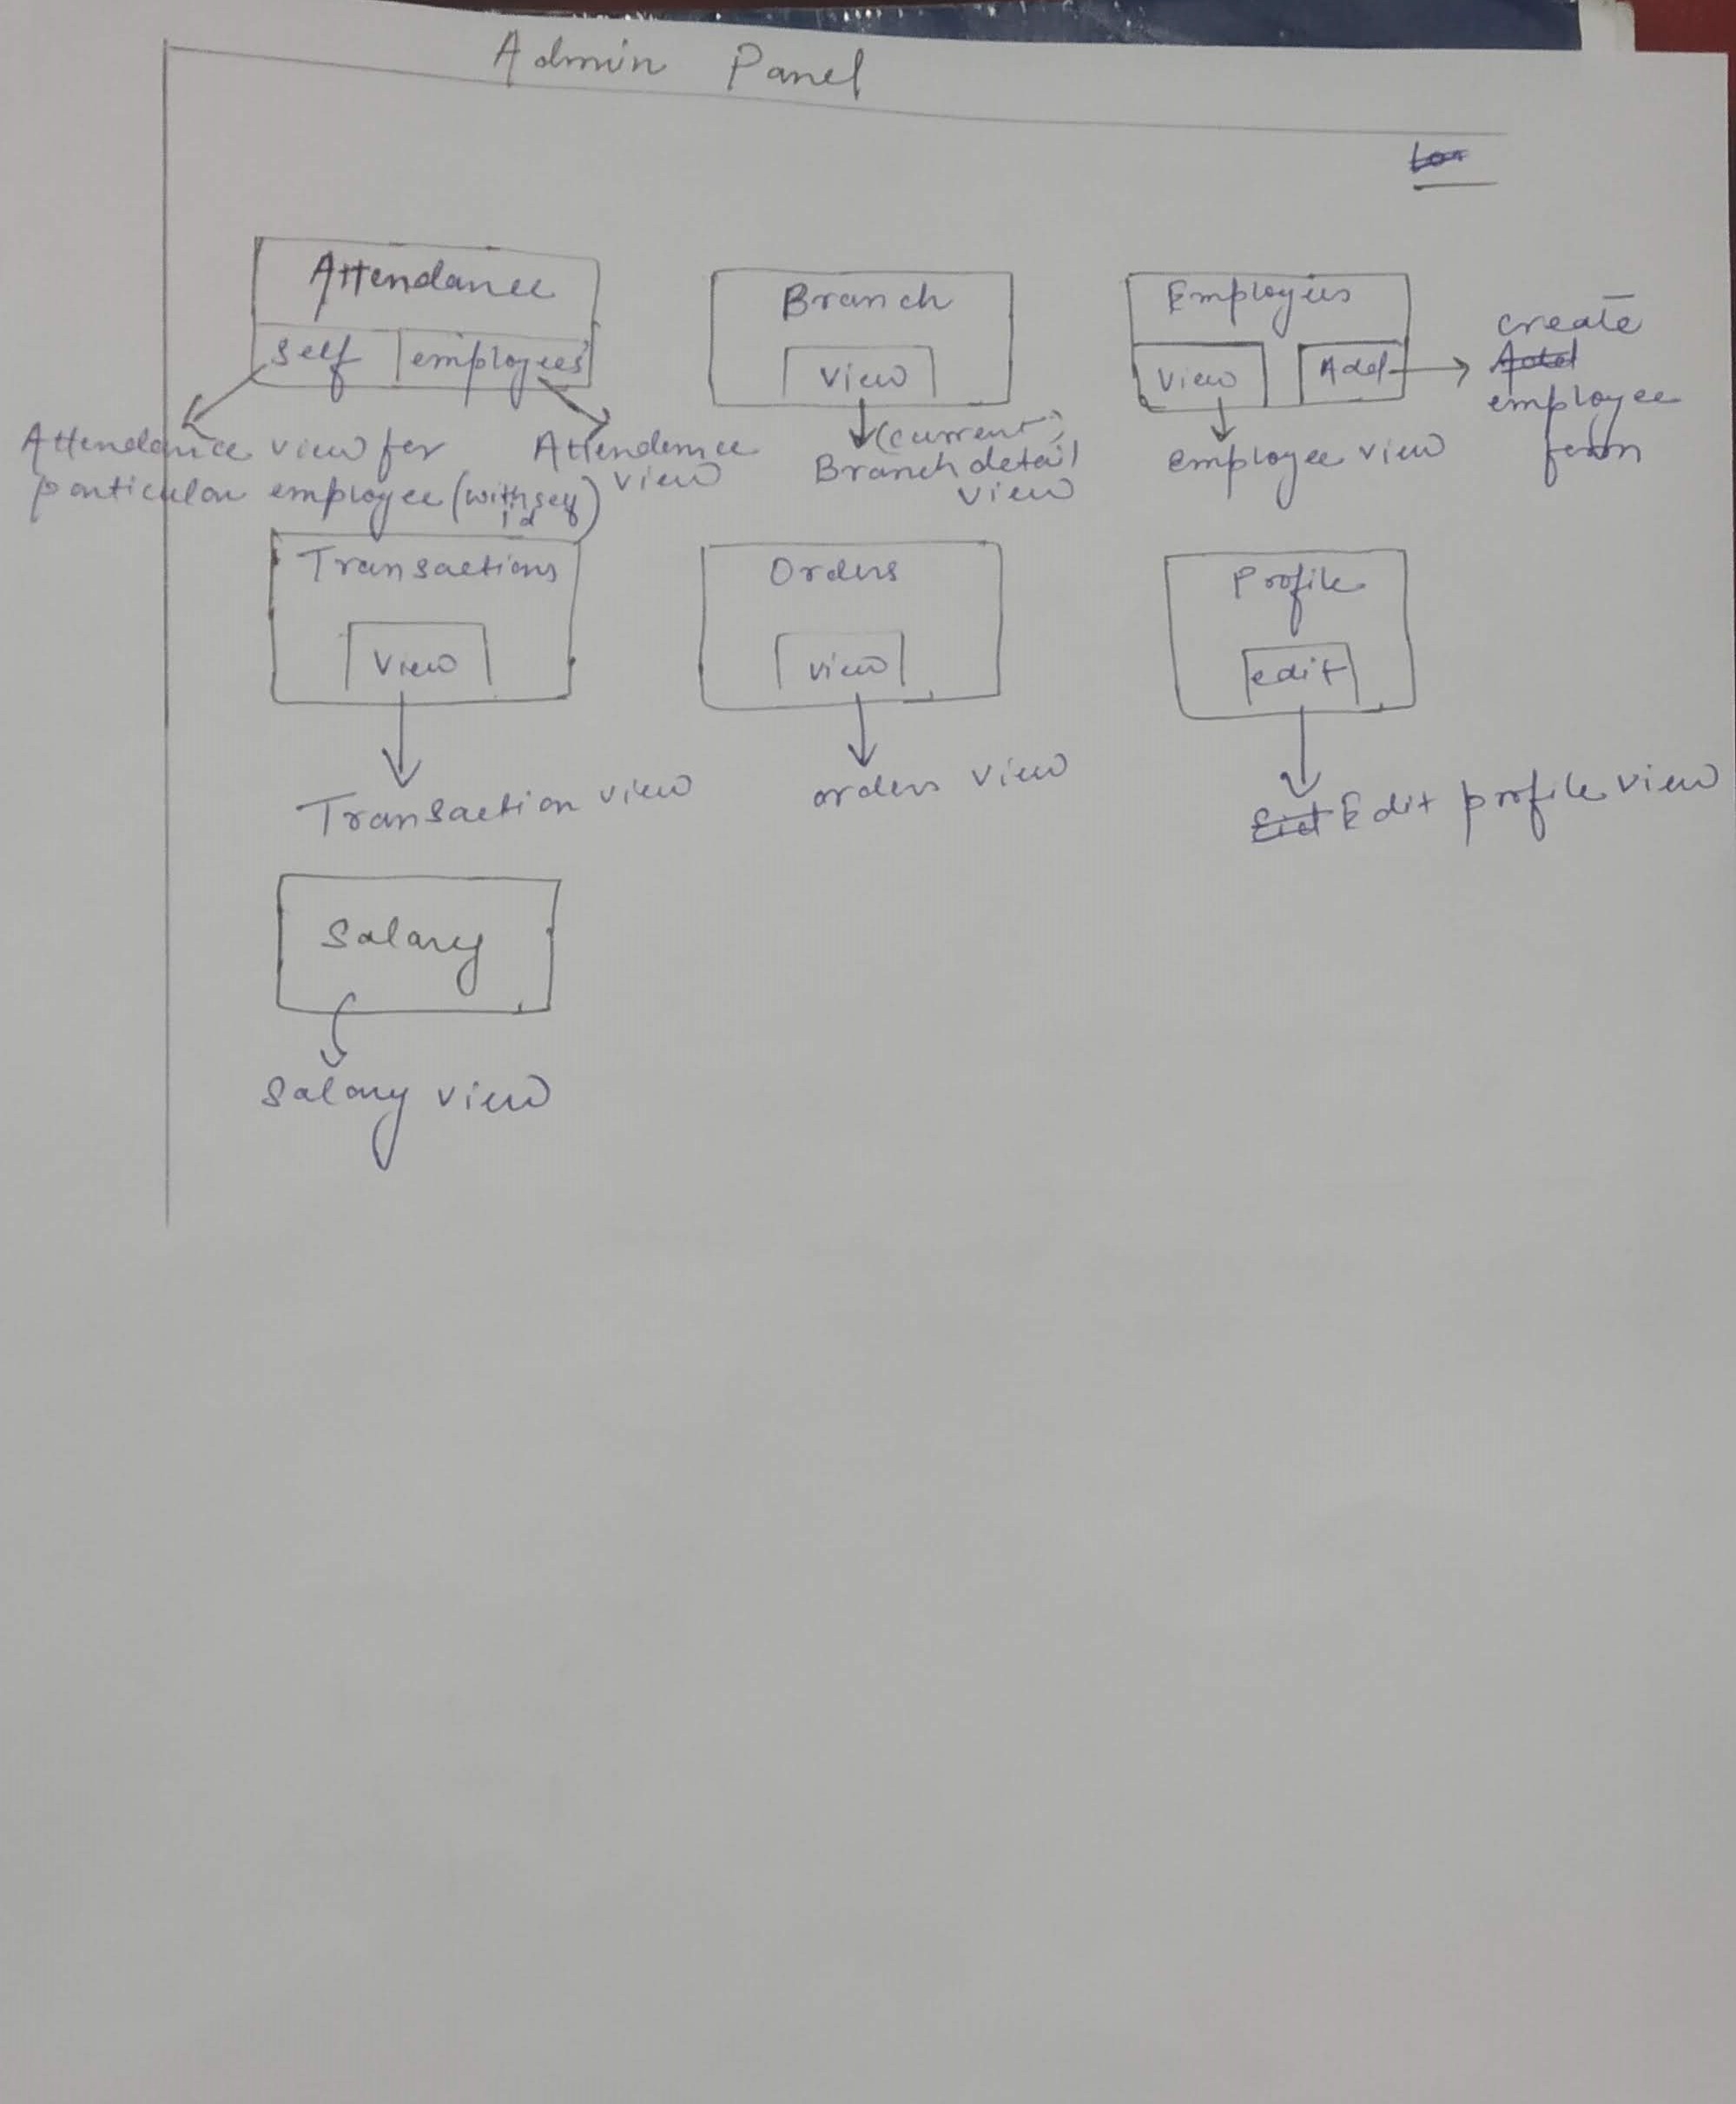 Admin Panel
Attendance
self employees
Attendance view for
particular employee (with self
id)
Attendence
view
Branch
View
(current)
Branch detail
view
Employees
View Add
employee view
create
Add
employee
form
Transactions
View
Transaction view
Orders
view
orders view
Profile
edit
Edit profile view
Salary
Salary view